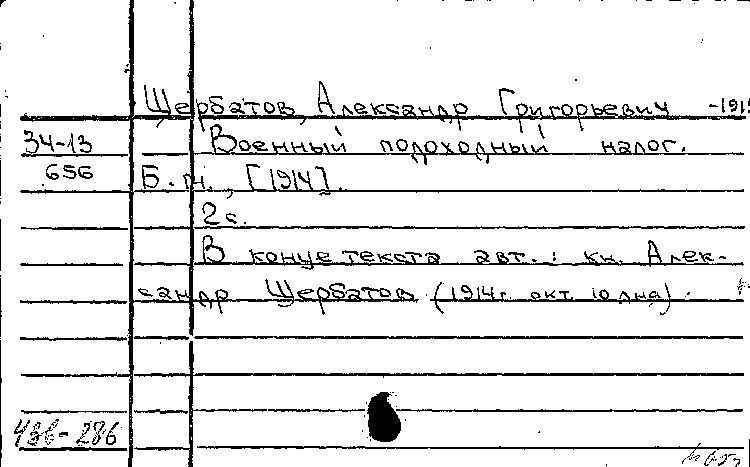 Щербатов, Александр Григорьевич -1915
34-13 Военный подоходный налог.
656 Б. м., [1914].
2 с.
В конце текста авт.: кн. Алек-
сандр Щербатов (1914 г. окт. 10 дня).